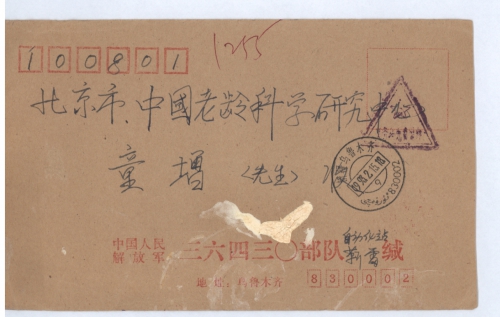 1255
100801
北京市、中國老龄科学研究中心
童增 (先生)
新疆乌鲁木齐
830002
自动化站
中国人民
解放军
三六四三〇部队 缄
地址：乌鲁木齐
830002